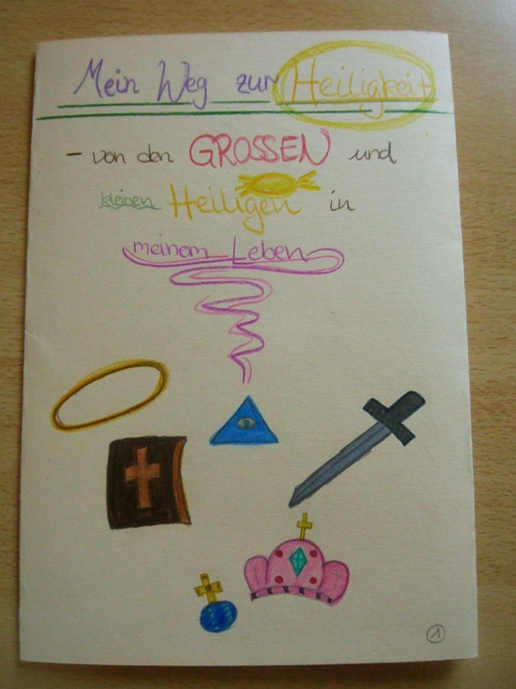 Mein Weg zur Heiligkeit
- von den GROSSEN und
kleinen Heiligen in
meinem Leben
1